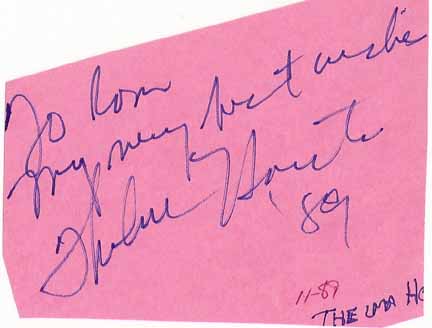 To Ron
my very best wishes
Thelma Houston
'89
11-89
THELMA HO